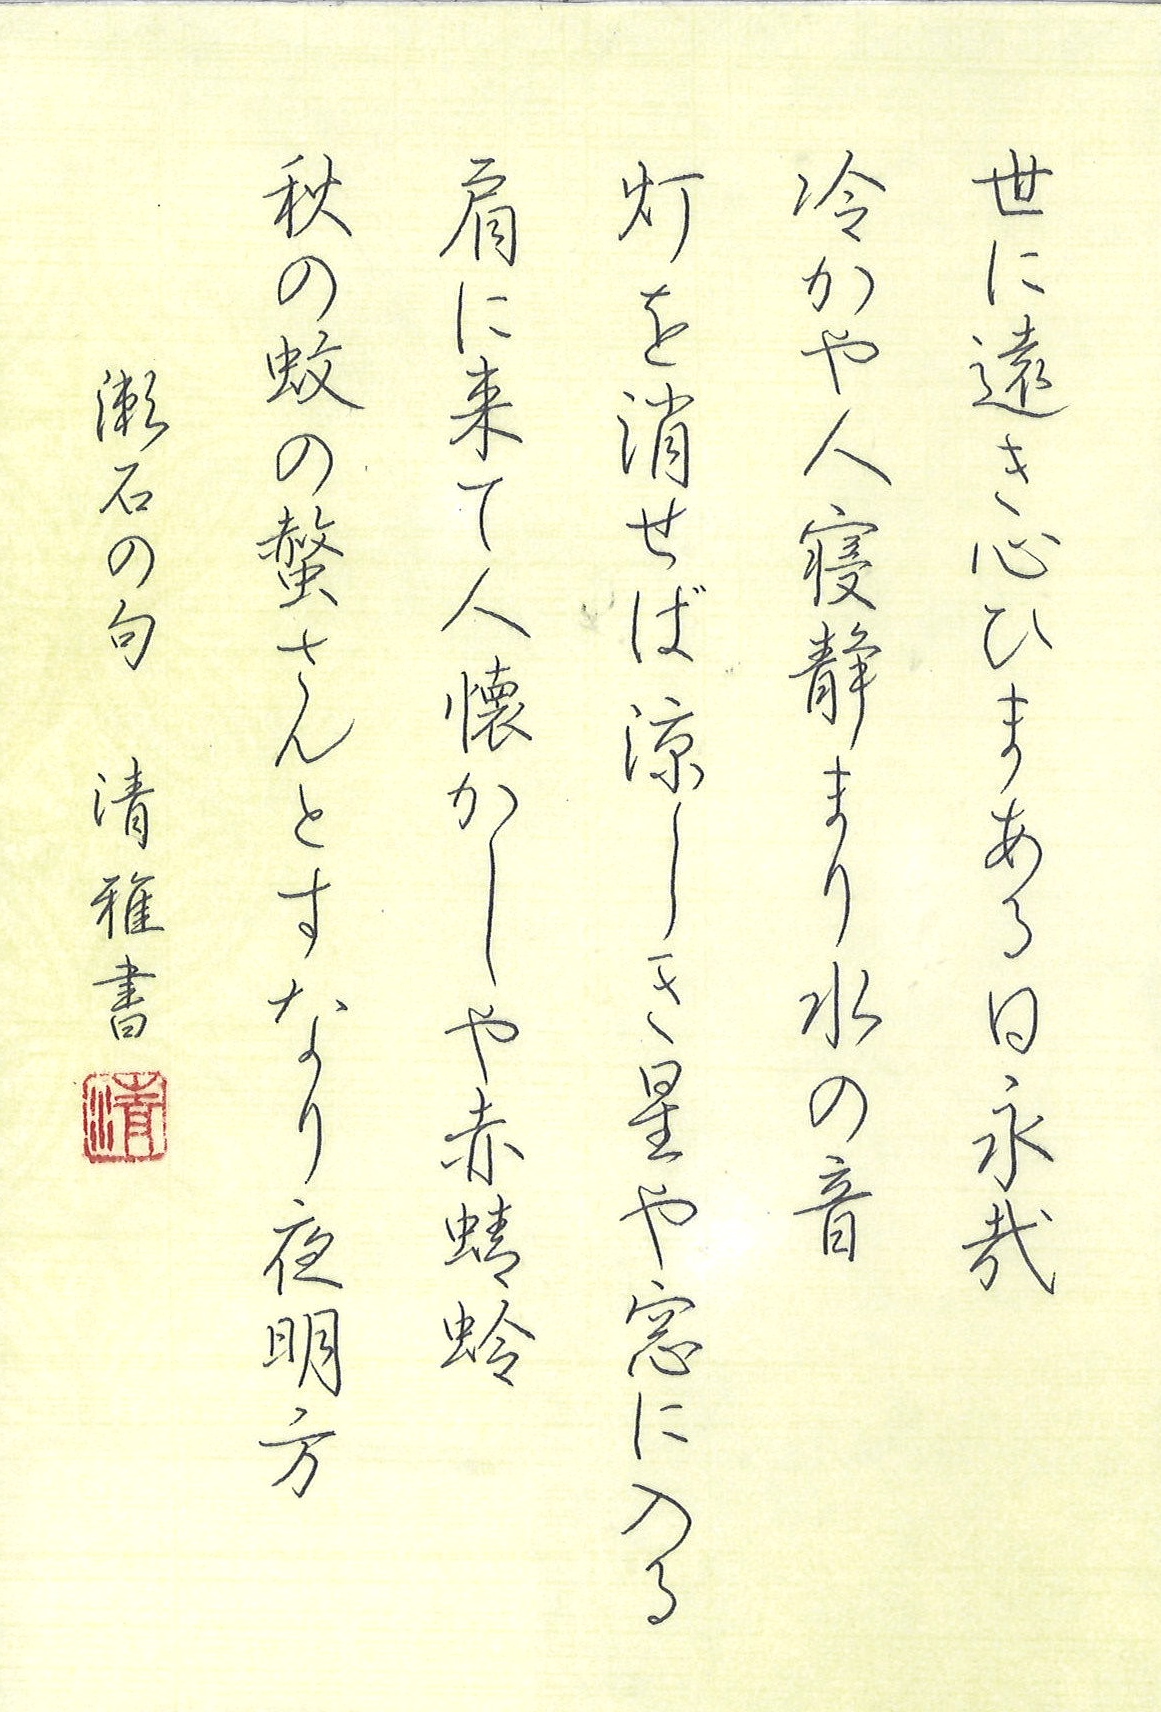 世に遠き心ひまある日永哉
冷かや人寝静まり水の音
灯を消せば涼しき星や窓に入る
肩に来て人懐かしや赤蜻蛉
秋の蚊の螫さんとすなり夜明方
漱石の句　清雅書
清